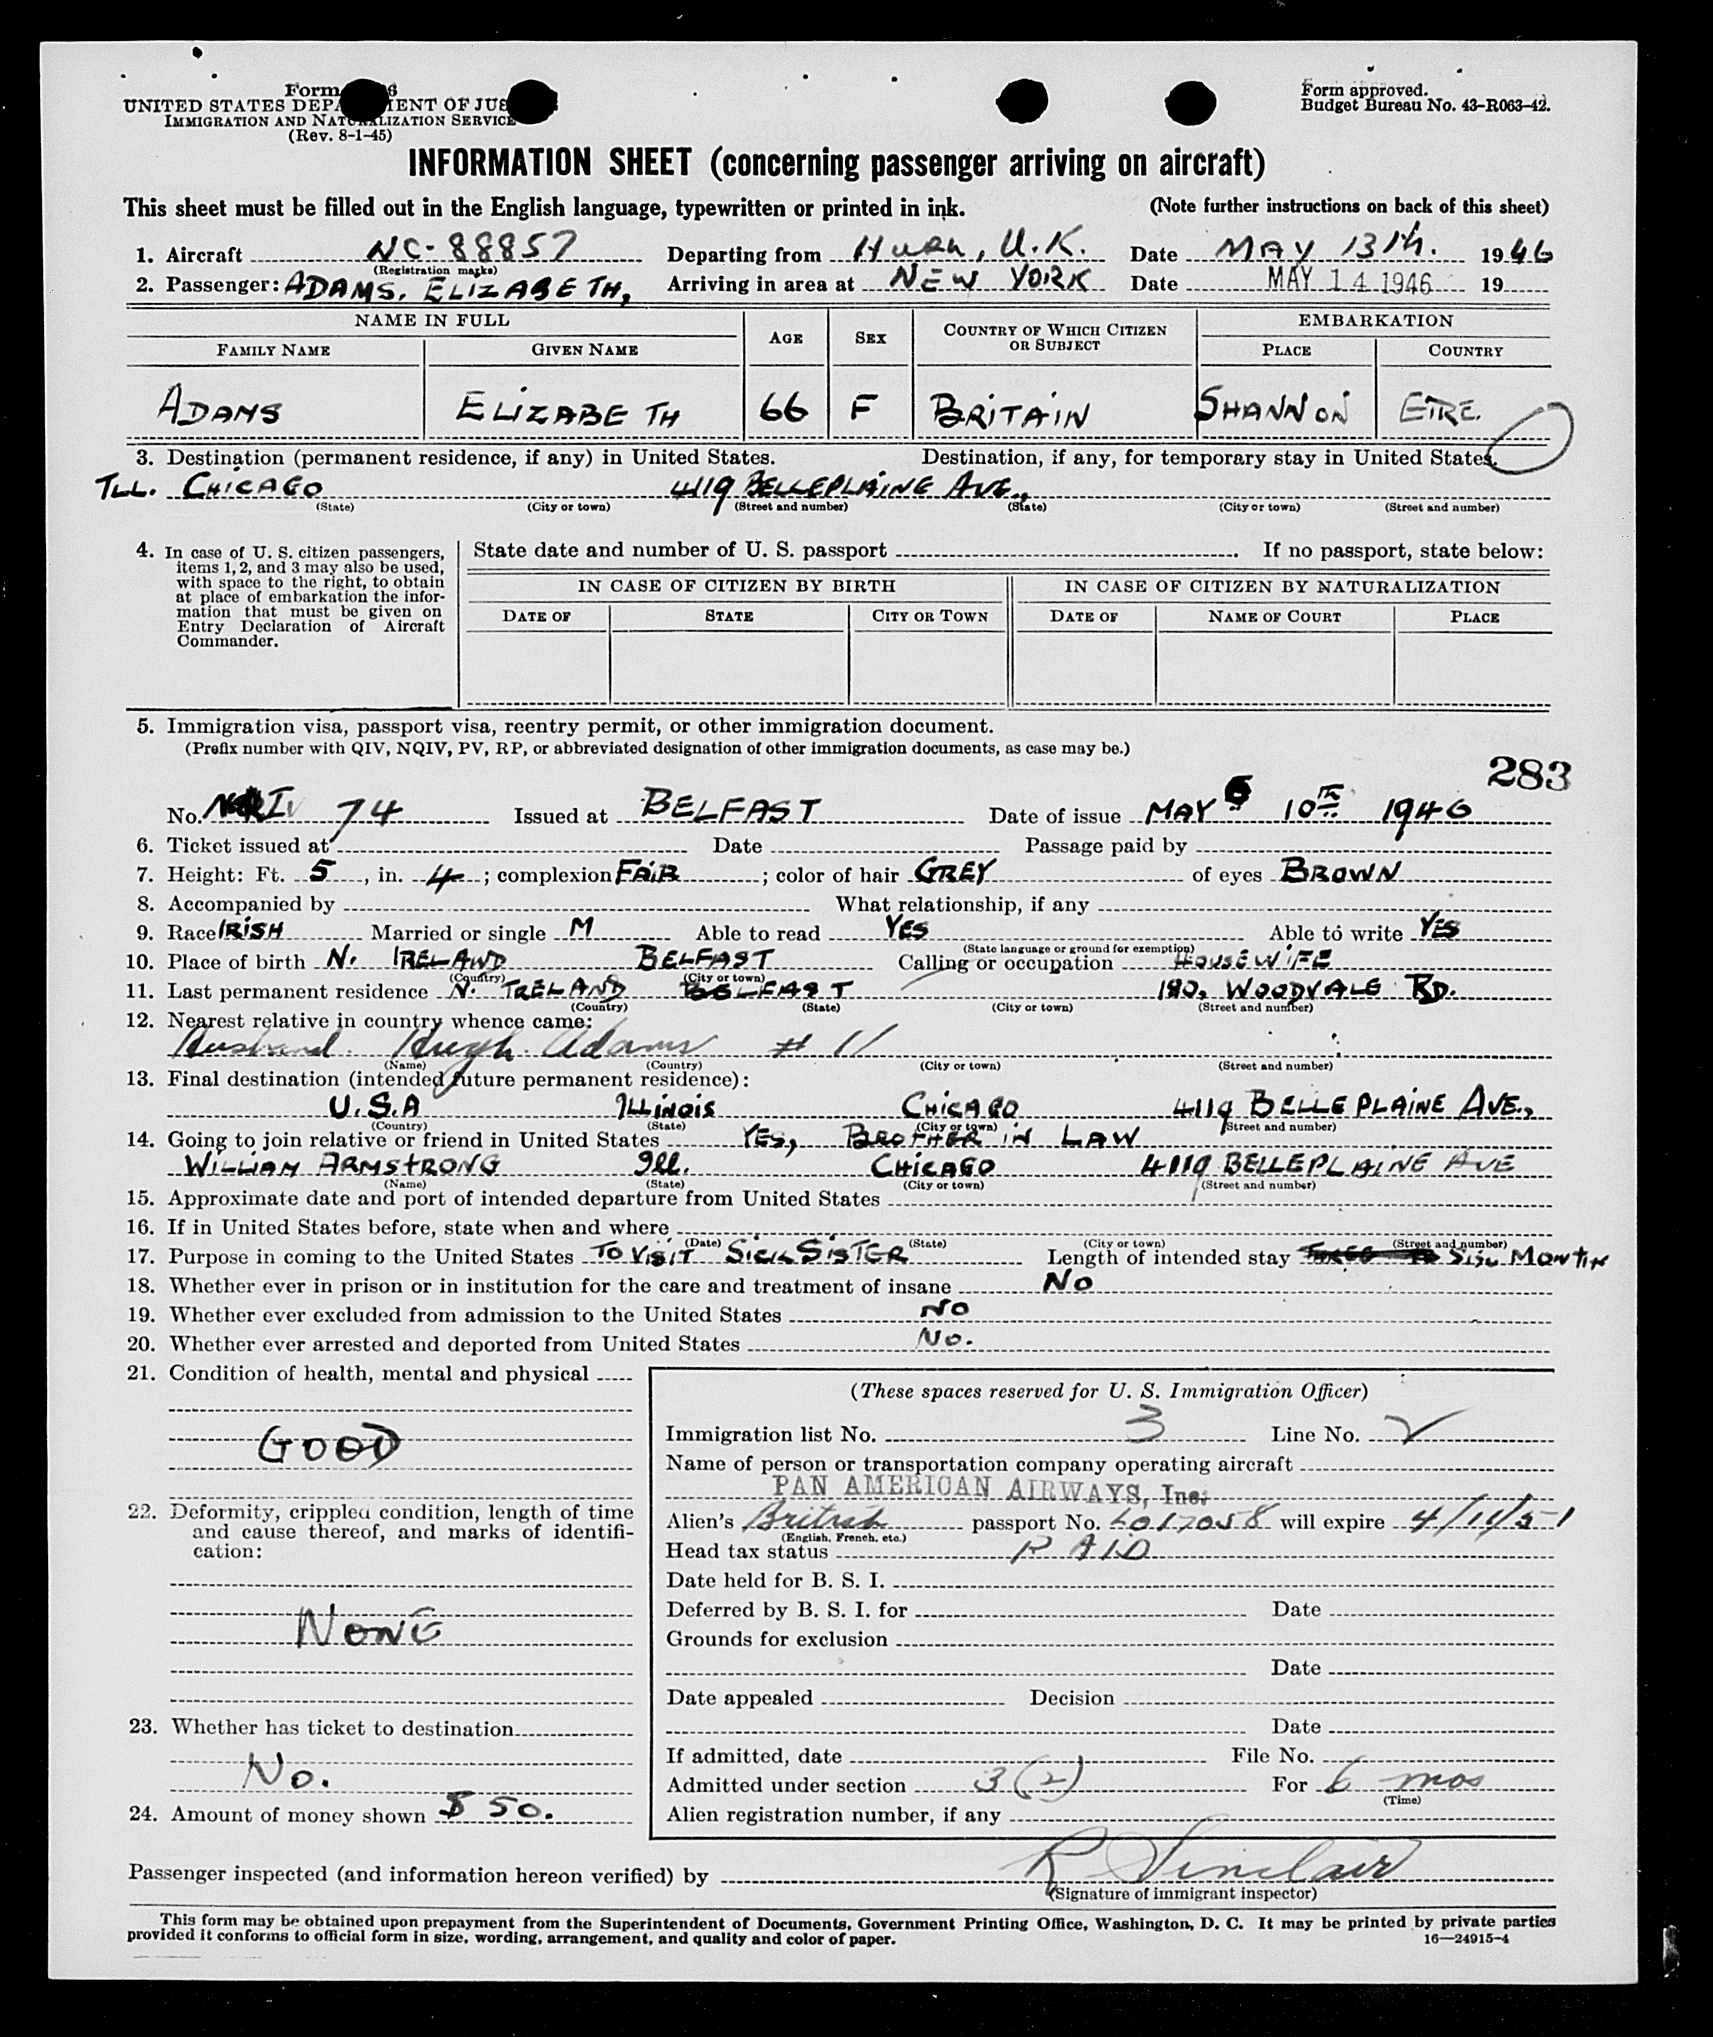 Form
UNITED STATES DEPARTMENT OF JUSTICE
IMMIGRATION AND NATURALIZATION SERVICE
(Rev. 8-1-45)
Form approved.
Budget Bureau No. 43-R063-42.
INFORMATION SHEET (concerning passenger arriving on aircraft)
This sheet must be filled out in the English language, typewritten or printed in ink. (Note further instructions on back of this sheet)
1. Aircraft NC-88857 Departing from HURN, U.K. Date MAY 13th. 1946
(Registration marks)
2. Passenger: ADAMS, ELIZABETH, Arriving in area at NEW YORK Date MAY 14 1946 19
NAME IN FULL AGE SEX COUNTRY OF WHICH CITIZEN OR SUBJECT EMBARKATION
FAMILY NAME GIVEN NAME PLACE COUNTRY
ADAMS ELIZABETH 66 F BRITAIN SHANNON EIRE.
3. Destination (permanent residence, if any) in United States. Destination, if any, for temporary stay in United States.
ILL. CHICAGO 4119 BELLEPLAINE AVE.,
(State) (City or town) (Street and number) (State) (City or town) (Street and number)
4. In case of U. S. citizen passengers,
items 1, 2, and 3 may also be used,
with space to the right, to obtain
at place of embarkation the infor-
mation that must be given on
Entry Declaration of Aircraft
Commander.
State date and number of U. S. passport . If no passport, state below:
IN CASE OF CITIZEN BY BIRTH IN CASE OF CITIZEN BY NATURALIZATION
DATE OF STATE CITY OR TOWN DATE OF NAME OF COURT PLACE
5. Immigration visa, passport visa, reentry permit, or other immigration document.
(Prefix number with QIV, NQIV, PV, RP, or abbreviated designation of other immigration documents, as case may be.)
283
No. 74 Issued at BELFAST Date of issue MAY 10TH 1946
6. Ticket issued at Date Passage paid by
7. Height: Ft. 5, in. 4; complexion FAIR; color of hair GREY of eyes BROWN
8. Accompanied by What relationship, if any
9. Race IRISH Married or single M Able to read YES Able to write YES
(State language or ground for exemption)
10. Place of birth N. IRELAND BELFAST Calling or occupation HOUSEWIFE
(Country) (City or town)
11. Last permanent residence N. IRELAND BELFAST 180, WOODVALE RD.
(Country) (State) (City or town) (Street and number)
12. Nearest relative in country whence came:
Husband. Hugh. Adams # 11
(Name) (Country) (City or town) (Street and number)
13. Final destination (intended future permanent residence):
U.S.A ILLINOIS CHICAGO 4119 BELLEPLAINE AVE.,
(Country) (State) (City or town) (Street and number)
14. Going to join relative or friend in United States YES, BROTHER IN LAW
WILLIAM ARMSTRONG Ill. CHICAGO 4119 BELLEPLAINE AVE
(Name) (State) (City or town) (Street and number)
15. Approximate date and port of intended departure from United States
16. If in United States before, state when and where
(Date) (State) (City or town) (Street and number)
17. Purpose in coming to the United States TO VISIT SICK SISTER Length of intended stay SIX MONTH
18. Whether ever in prison or in institution for the care and treatment of insane NO
19. Whether ever excluded from admission to the United States NO
20. Whether ever arrested and deported from United States NO.
21. Condition of health, mental and physical
GOOD
22. Deformity, crippled condition, length of time
and cause thereof, and marks of identifi-
cation:
NONE
23. Whether has ticket to destination
No.
24. Amount of money shown $ 50.
(These spaces reserved for U. S. Immigration Officer)
Immigration list No. 3 Line No. 2
Name of person or transportation company operating aircraft
PAN AMERICAN AIRWAYS, Inc.
Alien's British passport No. will expire 4/11/51
(English, French, etc.)
Head tax status PAID
Date held for B. S. I.
Deferred by B. S. I. for Date
Grounds for exclusion
Date
Date appealed Decision
Date
If admitted, date File No.
Admitted under section 3(2) For 6 mos
(Time)
Alien registration number, if any
Passenger inspected (and information hereon verified) by R Sinclair
(Signature of immigrant inspector)
This form may be obtained upon prepayment from the Superintendent of Documents, Government Printing Office, Washington, D. C. It may be printed by private parties
provided it conforms to official form in size, wording, arrangement, and quality and color of paper. 16—24915-4